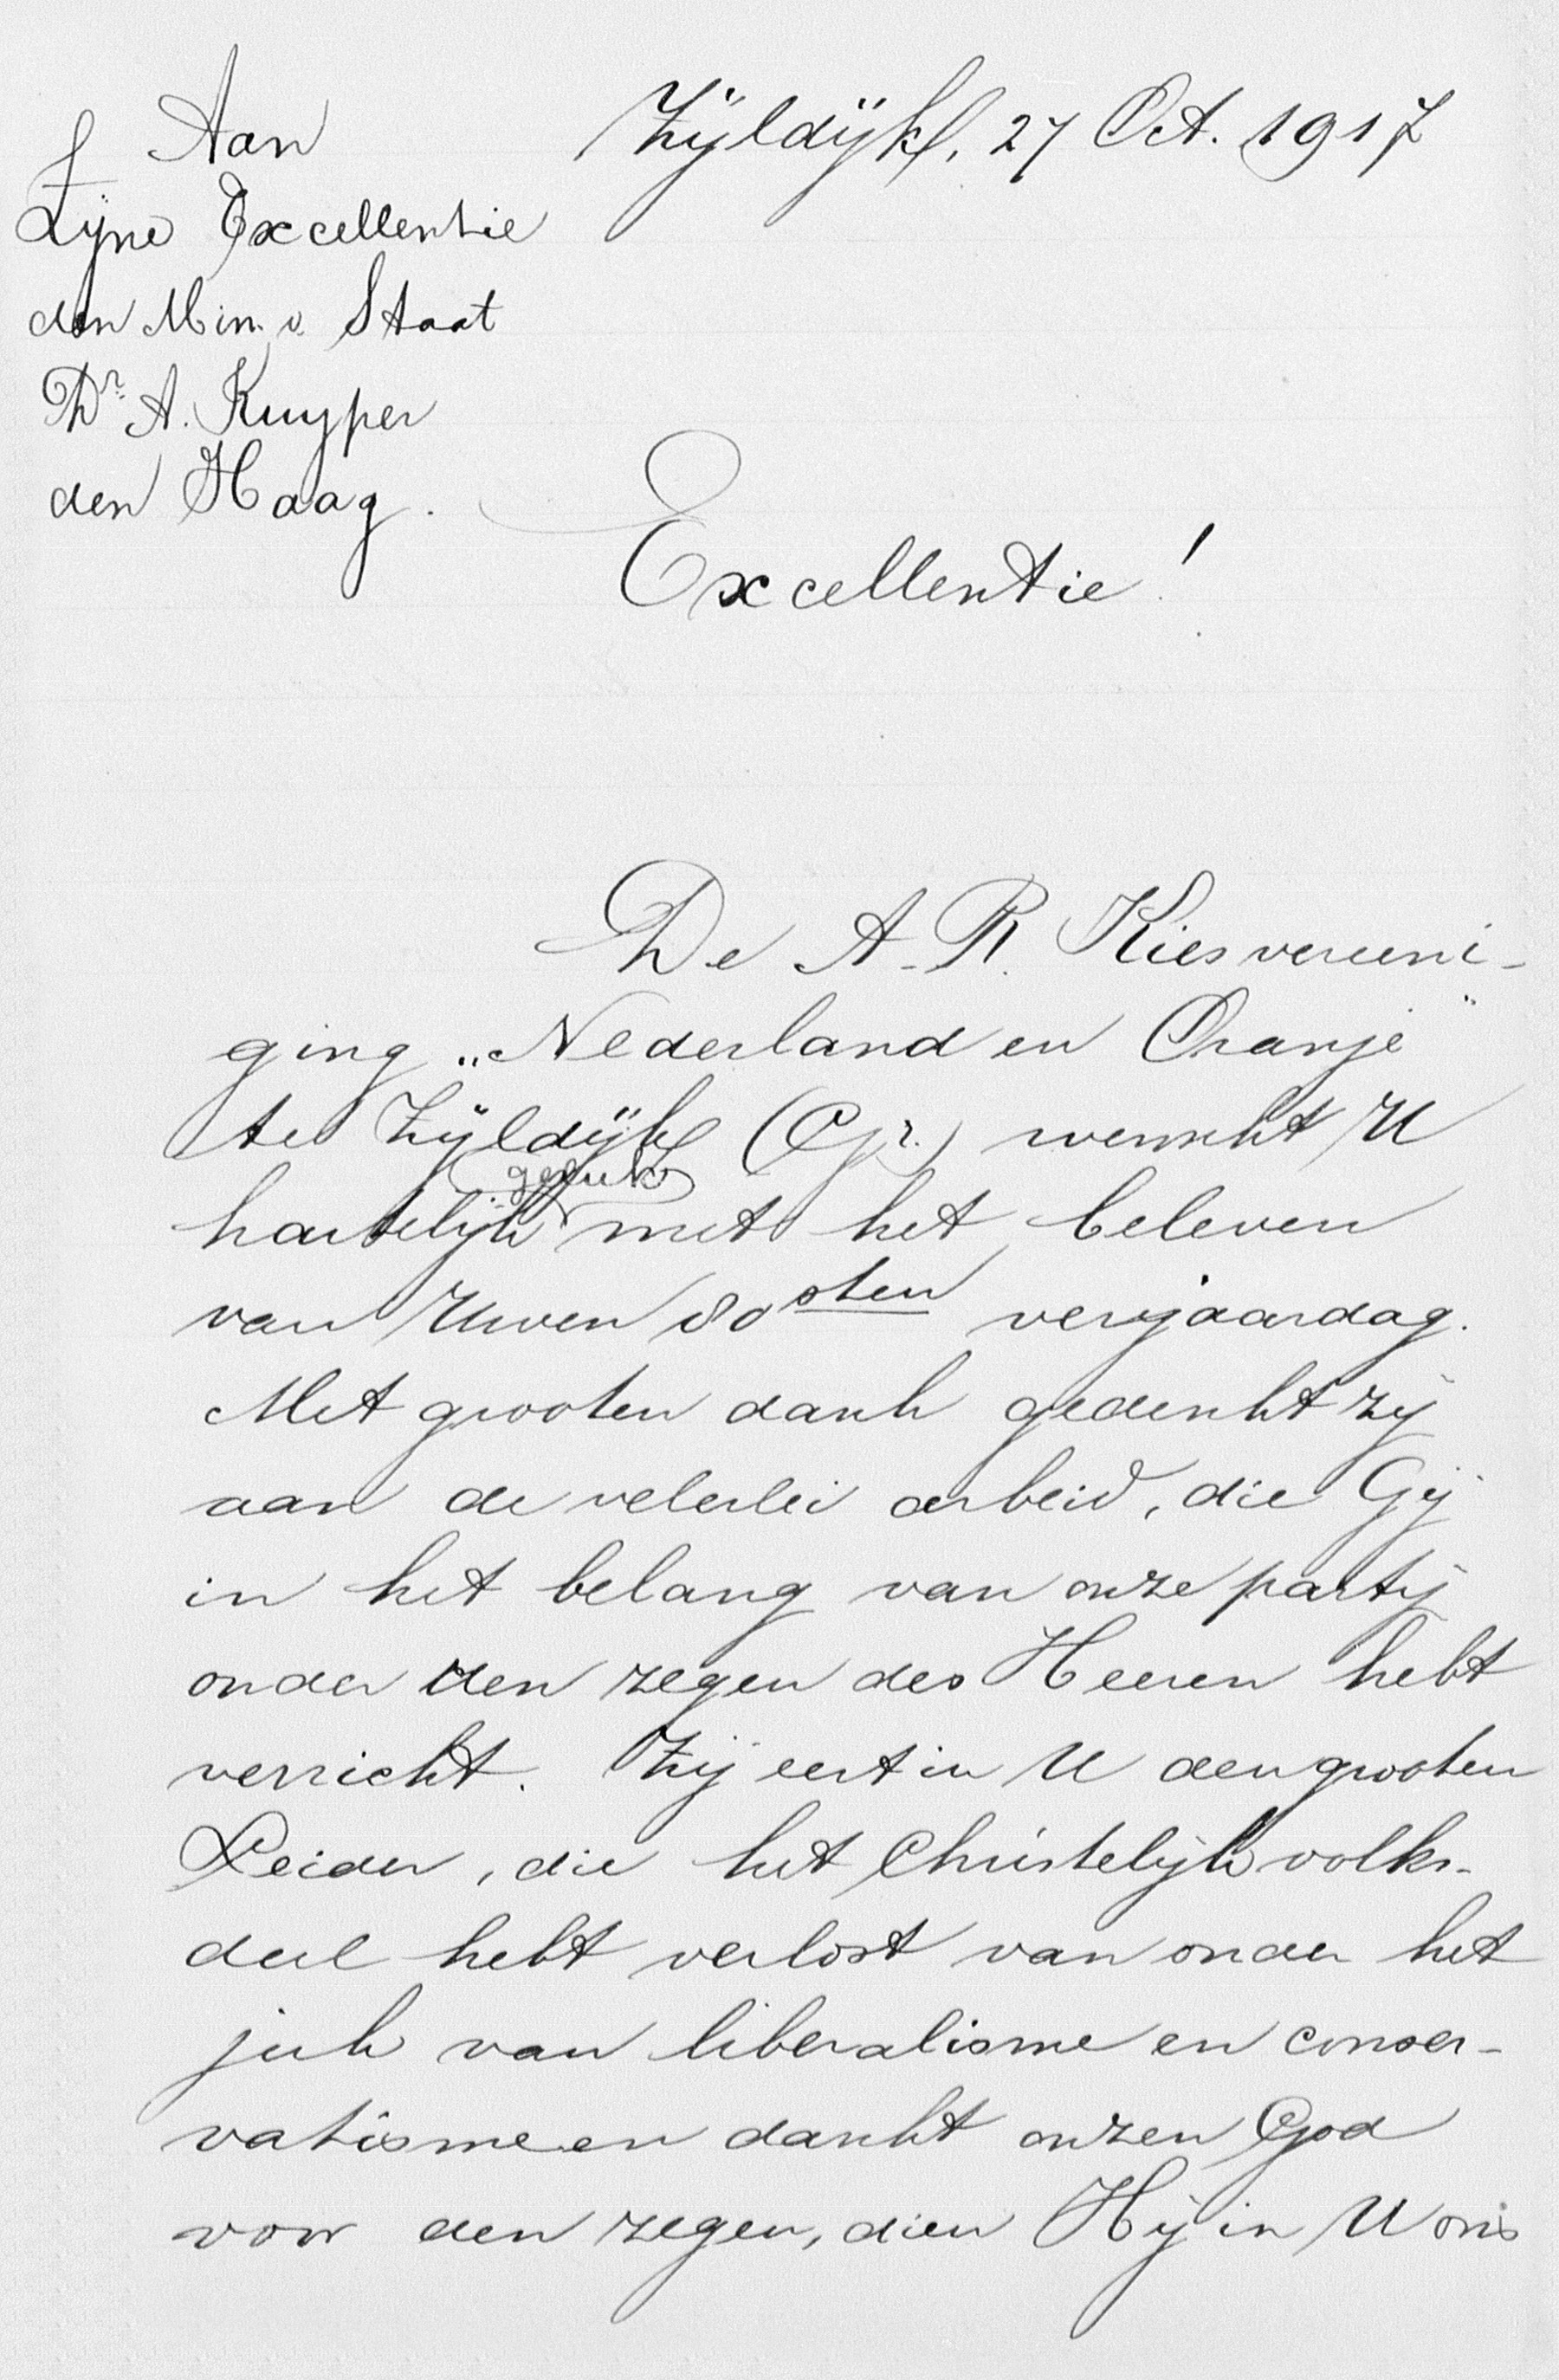 Aan
Zijne Excellentie
den Min. v. Staat
Dr. A. Kuyper
den Haag.
Zijldijk, 27 Oct. 1917
Excellentie!
De A.R. Kiesvereeni-
ging „Nederland en Oranje”
te Zijldijk (Gr.) wenscht U
geluk
hartelijk met het beleven
van Uwen 80sten verjaardag.
Met grooten dank gedenkt zij
aan de velerlei arbeid, die Gij
in het belang van onze partij
onder den zegen des Heeren hebt
verricht. Zij eert in U den grooten
Leider, die het Christelijk volks-
deel hebt verlost van onder het
juk van liberalisme en conser-
vatisme en dankt onzen God
voor den zegen, dien Hij in U ons